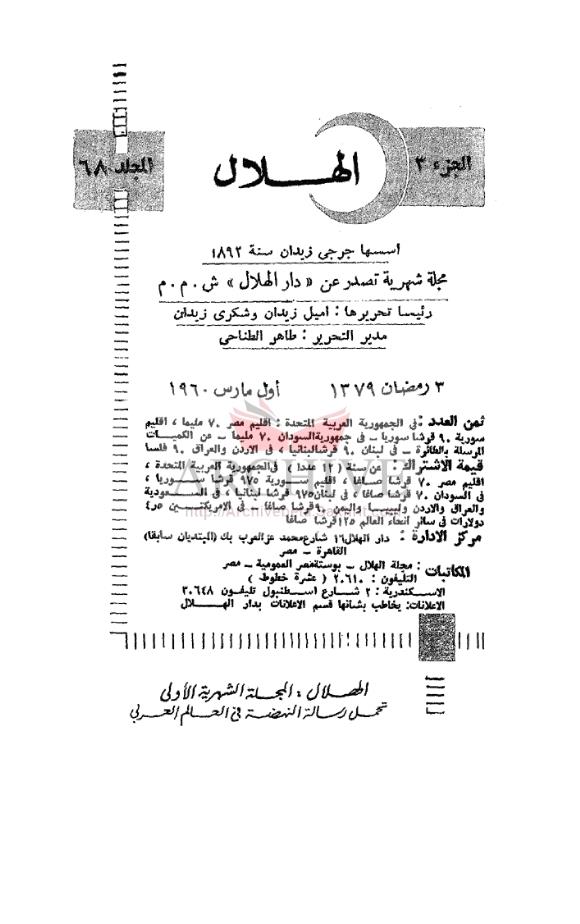 الجزء ٣
الهلال
المجلد ٦٨
اسسها جرجى زيدان سنة ١٨٩٢
مجلة شهرية تصدر عن «دار الهلال» ش.م.م
رئيسا تحريرها : اميل زيدان وشكرى زيدان
مدير التحرير : طاهر الطناحى
٣ رمضان ١٣٧٩ أول مارس ١٩٦٠
ثمن العدد : فى الجمهورية العربية المتحدة : اقليم مصر ٧٠ مليما ، اقليم
سورية ٩٠ قرشا سوريا ــ فى جمهورية السودان ٧٠ مليما ــ عن الكميات
المرسلة بالطائرة ــ فى لبنان ٩٠ قرشا لبنانيا ، فى الاردن والعراق ٩٠ فلسا
قيمة الاشتراك : عن سنة ( ١٢ عددا ) فى الجمهورية العربية المتحدة ،
اقليم مصر ٧٠ قرشا صاغا ، اقليم سورية ٩٧٥ قرشا سوريا ،
فى السودان ٧٠ قرشا صاغا ، فى لبنان ٩٧٥ قرشا لبنانيا ، فى السعودية
والعراق والاردن وليبيا واليمن ٩٠ قرشا صاغا ــ فى الامريكتين ٤٥ر
دولارات فى سائر انحاء العالم ١٢٥ قرشا صاغا
مركز الادارة : دار الهلال ١٦ شارع محمد عز العرب بك (المبتديان سابقا)
القاهرة ــ مصر
المكاتبات : مجلة الهلال ــ بوستة مصر العمومية ــ مصر
التليفون : ٢٠٦١٠ ( عشرة خطوط )
الاسكندرية : ٢ شارع اسطنبول تليفون ٣٠٦٤٨
الاعلانات : يخاطب بشانها قسم الاعلانات بدار الهلال
الهلال : المجلة الشهرية الأولى
تحمل رسالة النهضة فى العالم العربى
ARCHIVE